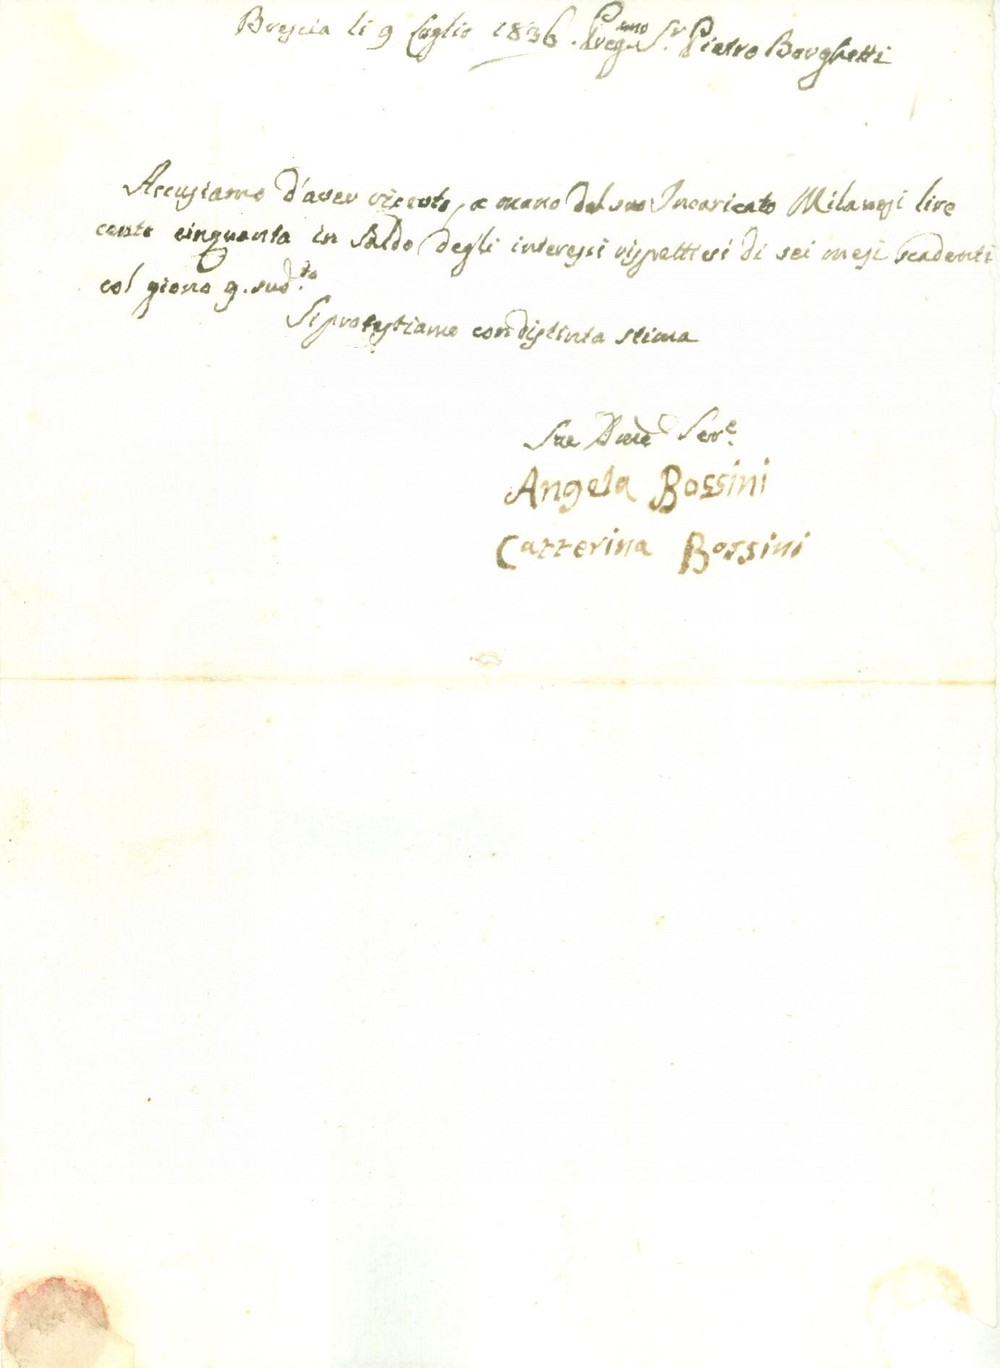 Brescia li 9 Luglio 1836. Preg.mo S.r Pietro Borghetti
Accusiamo d'aver riceuto, a mano del suo Incaricato Milanesi lire
cento cinquanta in saldo degli interessi rispettivi di sei mesi scadenti
col giorno 9. sud.to
Si protestiamo con distinta stima
Sue Serve
Angela Bossini
Catterina Bossini